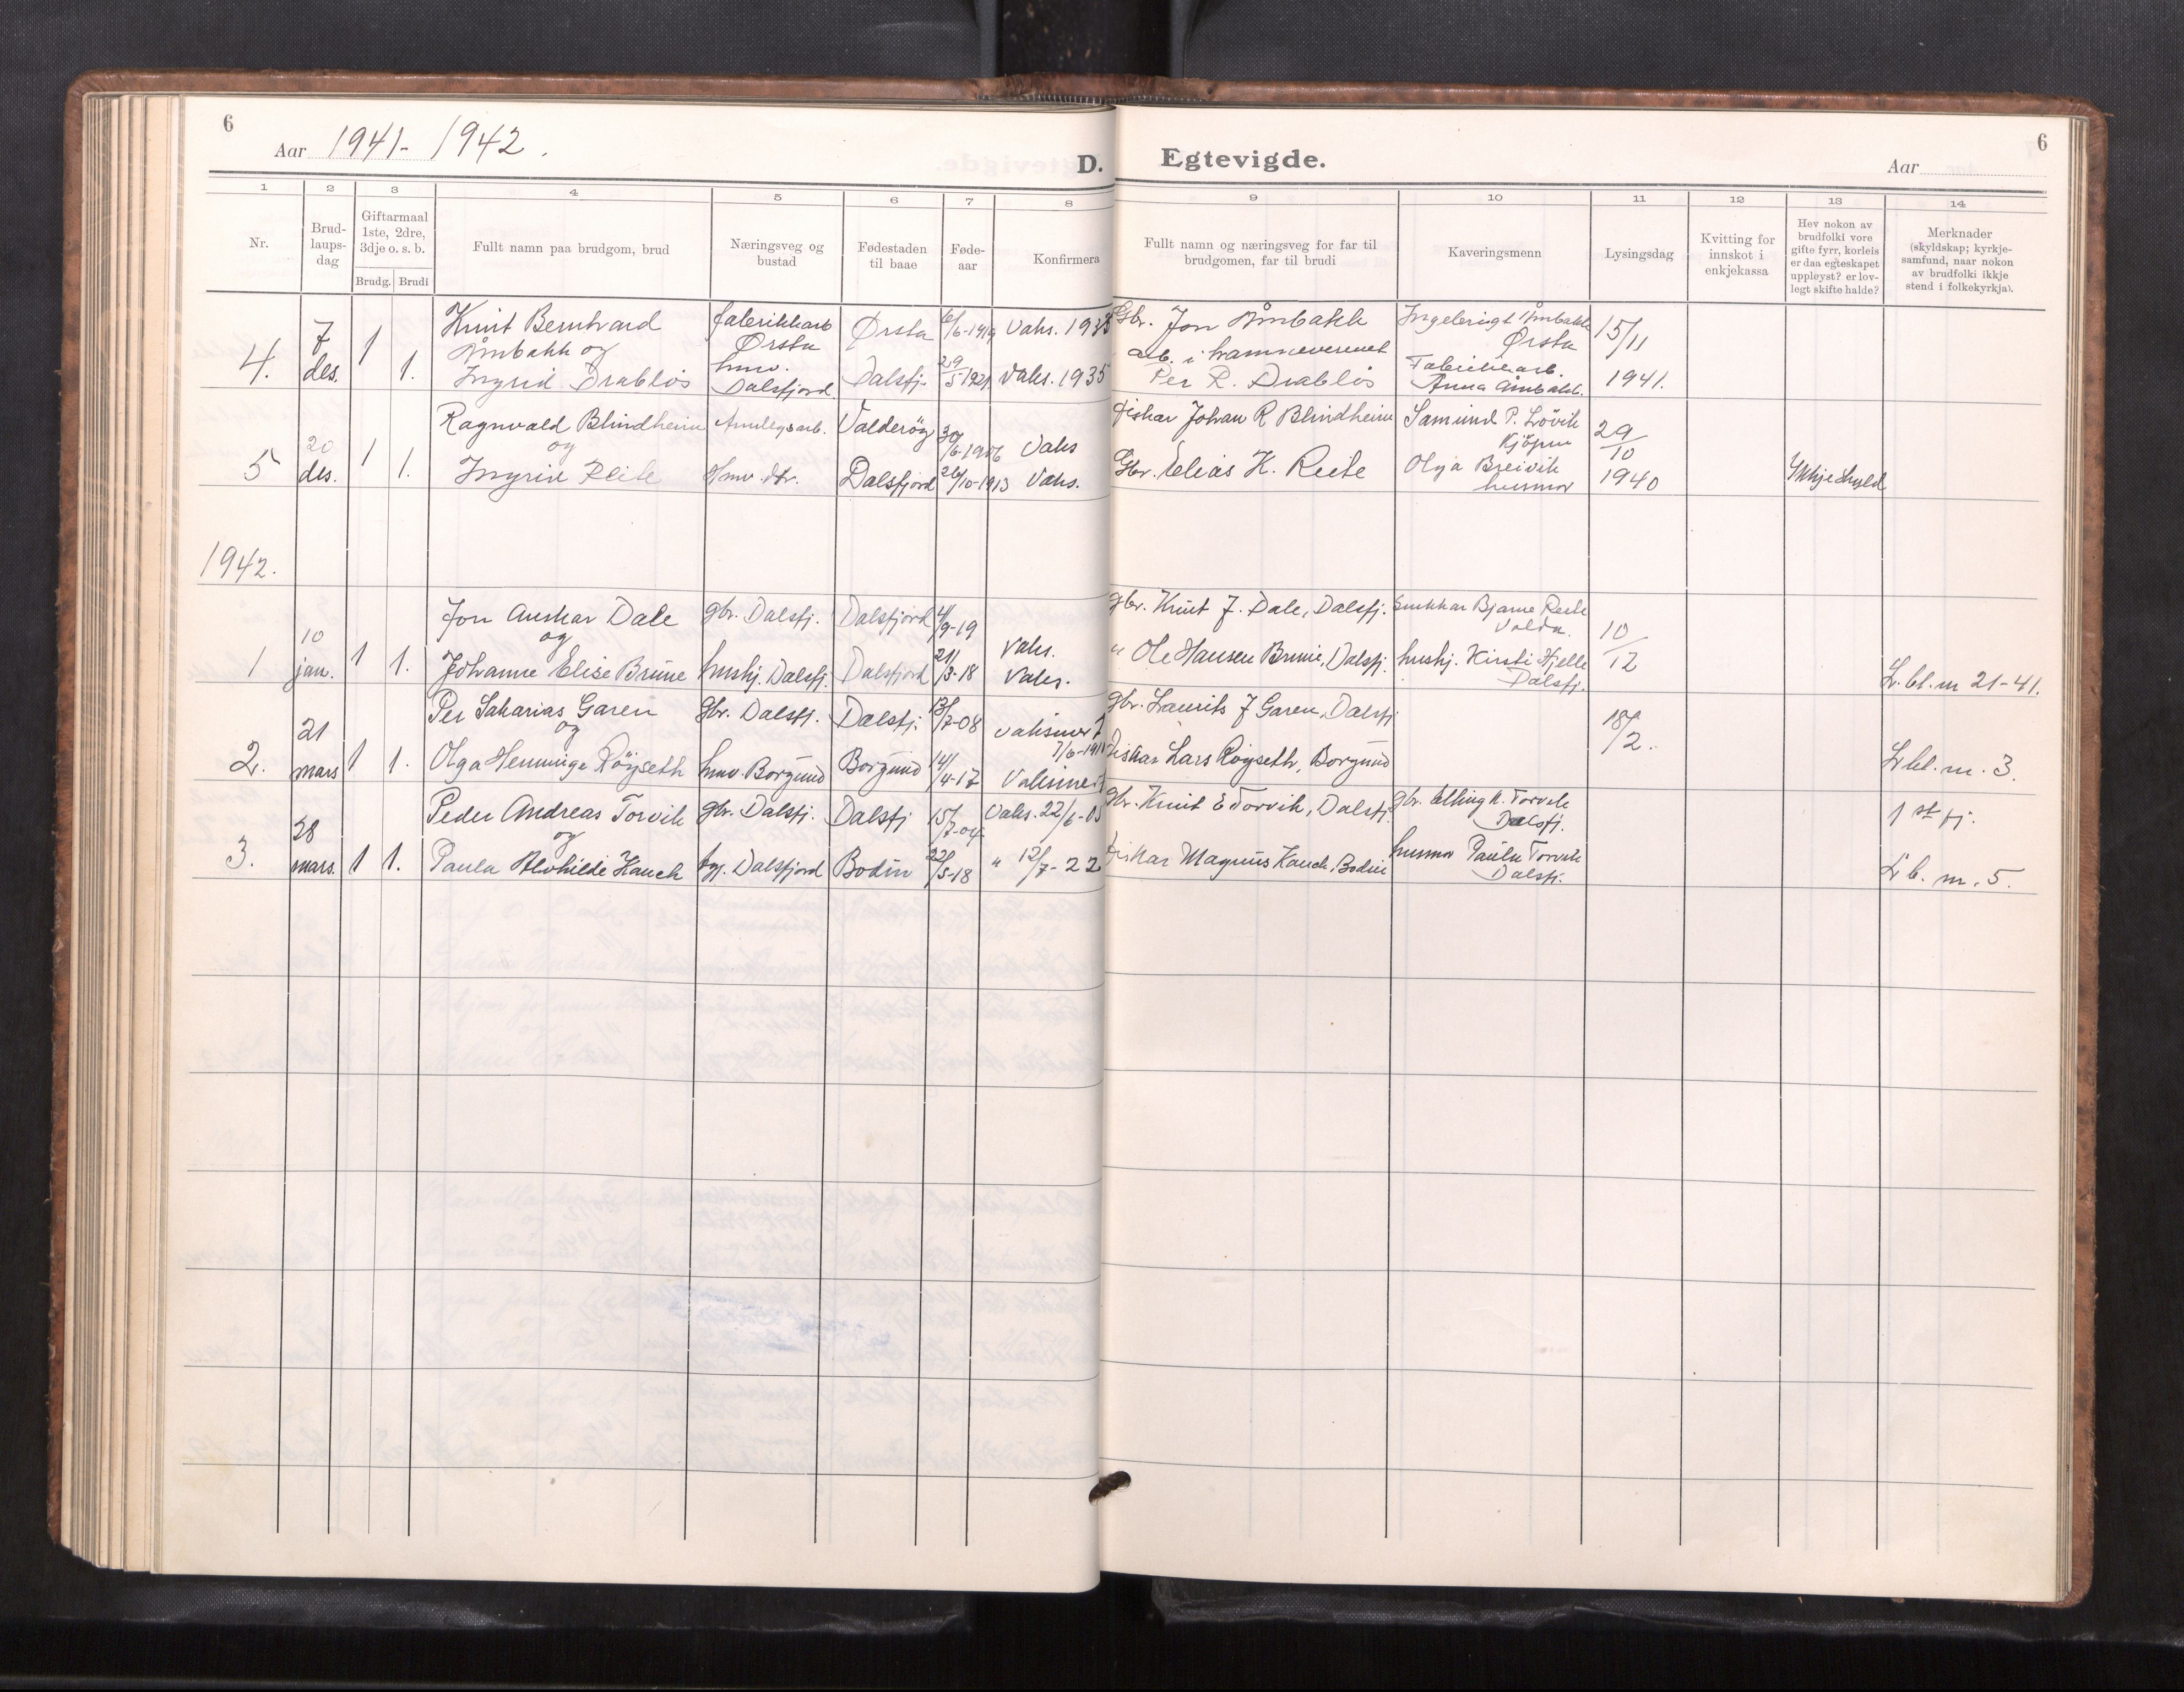 6
Aar 1941-1942.
D. Egtevigde.
Aar
6
1 2 3 4 5 6 7 8 9 10 11 12 13 14
Nr.
Brud-
laups-
dag
Giftarmaal
1ste, 2dre,
3dje o. s. b.
Brudg. Brudi
Fullt namn paa brudgom, brud
Næringsveg og
bustad
Fødestaden
til baae
Føde-
aar
Konfirmera
Fullt namn og næringsveg for far til
brudgomen, far til brudi
Kaveringsmenn
Lysingsdag
Kvitting for
innskot i
enkjekassa
Hev nokon av
brudfolki vore
gifte fyrr, korleis
er daa egteskapet
uppløyst? er lov-
legt skifte halde?
Merknader
(skyldskap; kyrkje-
samfund, naar nokon
av brudfolki ikkje
stend i folkekyrkja).
4.
7
des.
1
1.
Knut Bernhard
Åmbakk og
Ingrid Drabløs
fabrikkarb
Ørsta
hmv.
Dalsfjord
Ørsta
Dalsfj.
6/6-1919
29/5 1921
Vaks. 1933
Vaks. 1935
Gbr. Jon Åmbakk
arb. i hamnevesenet
Per R. Drabløs
Ingebrigt Åmbakk
Ørsta
Fabrikkarb.
Anna Åmbakk.
15/11
1941.
5
20
des.
1
1.
Ragnvald Blindheim
og
Ingrid Reite
Anleggsarb.
Hmv. dtr.
Valderøy
Dalsfjord
30/6-1906
26/10-1913
Vaks
Vaks.
Fiskar Johan R Blindheim
Gbr. Elias K. Reite
Samund P. Løvik
Kjøpm
Olga Breivik
husmor
29/10
1940
Ikkje skyld
1942.
1
10
jan.
1
1.
Jon Anskar Dale
og
Johanne Elise Brune
gbr. Dalsfj.
hushj. Dalsfj.
Dalsfjord
Dalsfjord
4/9-19
21/3-18
Vaks.
Vaks.
gbr. Knut J. Dale, Dalsfj.
" Ole Hansen Brune, Dalsfj.
Snikkar Bjarne Reite
Volda.
hushj. Kirsti Hjelle
Dalsfj.
10/12
L.bl.m 21-41.
2.
21
mars
1
1.
Per Sakarias Garen
og
Olga Henninge Røyseth
Gbr. Dalsfj.
hmv. Borgund
Dalsfj.
Borgund
13/7-08
14/4-17
7/6-19
gbr. Laurits J Garen, Dalsfj
Fiskar Lars Røyseth, Borgund
18/2.
L bl. m. 3.
3.
28
mars.
1
1.
Peder Andreas Torvik
og
Paula Alvhilde Hauch
gbr. Dalsfj.
Dalsfjord
Dalsfj
Bodin
15/7-04
22/5-18
Vaks. 22/6-05
" 12/7-22
gbr. Knut E Torvik, Dalsfj.
Fiskar Magnus Hauch, Bodin
gbr. Elling K. Torvik
Dalsfj.
husmor Paula Torvik
Dalsfj.
L b. m. 5.